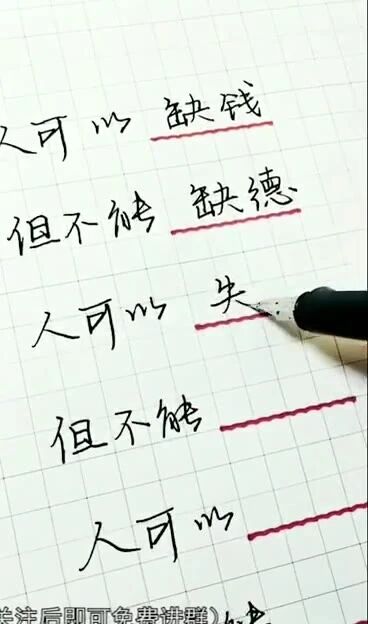 人可以 缺钱
但不能 缺德
人可以 失
但不能
人可以
关注后即可免费进群)